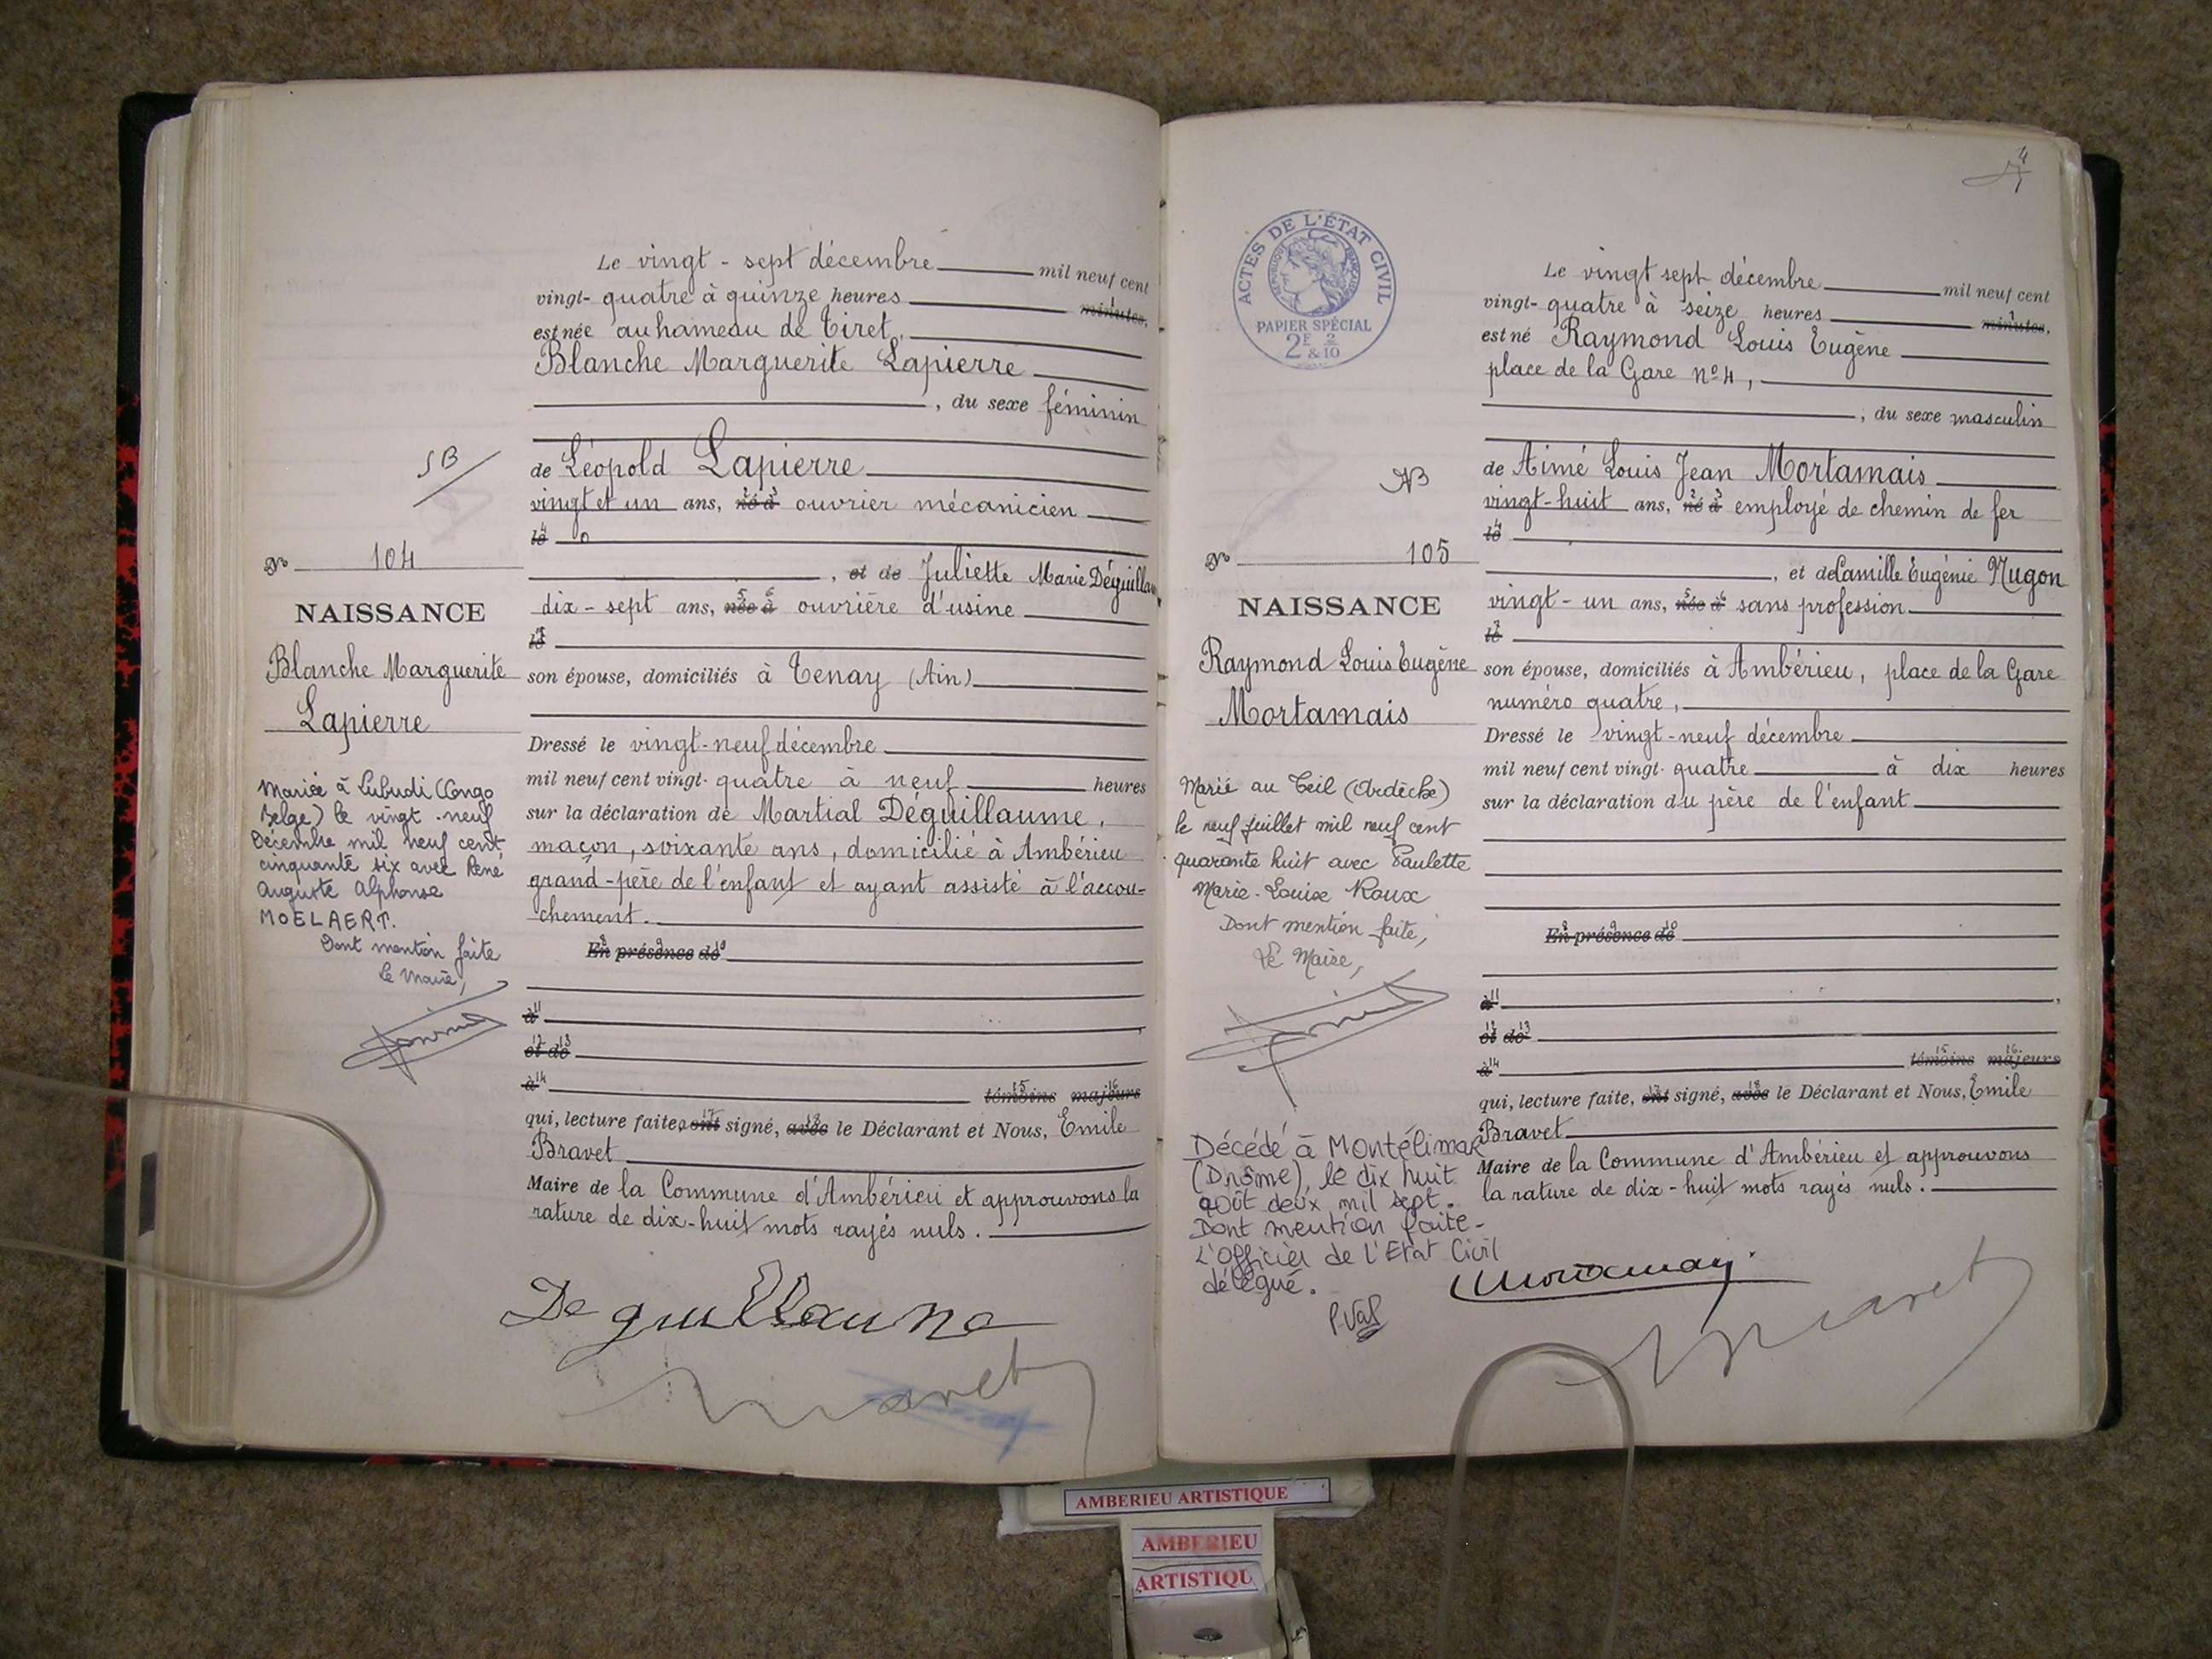 Le vingt-sept décembre mil neuf cent
vingt-quatre à quinze heures minutes,
est née au hameau de Tiret,
Blanche Marguerite Lapierre
, du sexe féminin
de Léopold Lapierre
vingt et un ans, né à ouvrier mécanicien
le
, et de Juliette Marie Déguillau
dix-sept ans, née à ouvrière d'usine
le
son épouse, domiciliés à Tenay (Ain)
Dressé le vingt-neuf décembre
mil neuf cent vingt-quatre à neuf heures
sur la déclaration de Martial Déguillaume,
maçon, soixante ans, domicilié à Ambérieu
grand-père de l'enfant et ayant assisté à l'accou-
chement.
En présence de
à
et de
à témoins majeurs
qui, lecture faite, ont signé, avec le Déclarant et Nous, Emile
Bravet
Maire de la Commune d'Ambérieu et approuvons la
rature de dix-huit mots rayés nuls.
Deguillaume
SB
No 104
NAISSANCE
Blanche Marguerite
Lapierre
Mariée à Lubudi (Congo
Belge) le vingt-neuf
Décembre mil neuf cent
cinquante six avec René
Auguste Alphonse
MOELAERT.
Dont mention faite
Le Maire,
4
ACTES DE L'ÉTAT CIVIL
RÉPUBLIQUE FRANÇAISE
PAPIER SPÉCIAL
2F 2
& 10
Le vingt sept décembre mil neuf cent
vingt-quatre à seize heures minutes,
est né Raymond Louis Eugène
place de la Gare nº 4,
, du sexe masculin
de Aimé Louis Jean Mortamais
vingt-huit ans, né à employé de chemin de fer
le
, et de Camille Eugénie Nugon
vingt-un ans, née à sans profession
le
son épouse, domiciliés à Ambérieu, place de la Gare
numéro quatre,
Dressé le vingt-neuf décembre
mil neuf cent vingt-quatre à dix heures
sur la déclaration du père de l'enfant
En présence de
à
et de
à témoins majeurs
qui, lecture faite, ont signé, avec le Déclarant et Nous, Emile
Bravet
Maire de la Commune d'Ambérieu et approuvons
la rature de dix-huit mots rayés nuls.
No 105
NAISSANCE
Raymond Louis Eugène
Mortamais
Marié au Teil (Ardèche)
le neuf juillet mil neuf cent
quarante huit avec Paulette
Marie-Louise Roux
Dont mention faite,
Le Maire,
Décédé à Montélimar
(Drôme), le dix huit
août deux mil sept.
Dont mention faite-
L'Officier de l'Etat Civil
délégué.
AMBERIEU ARTISTIQUE
AMBERIEU
ARTISTIQU